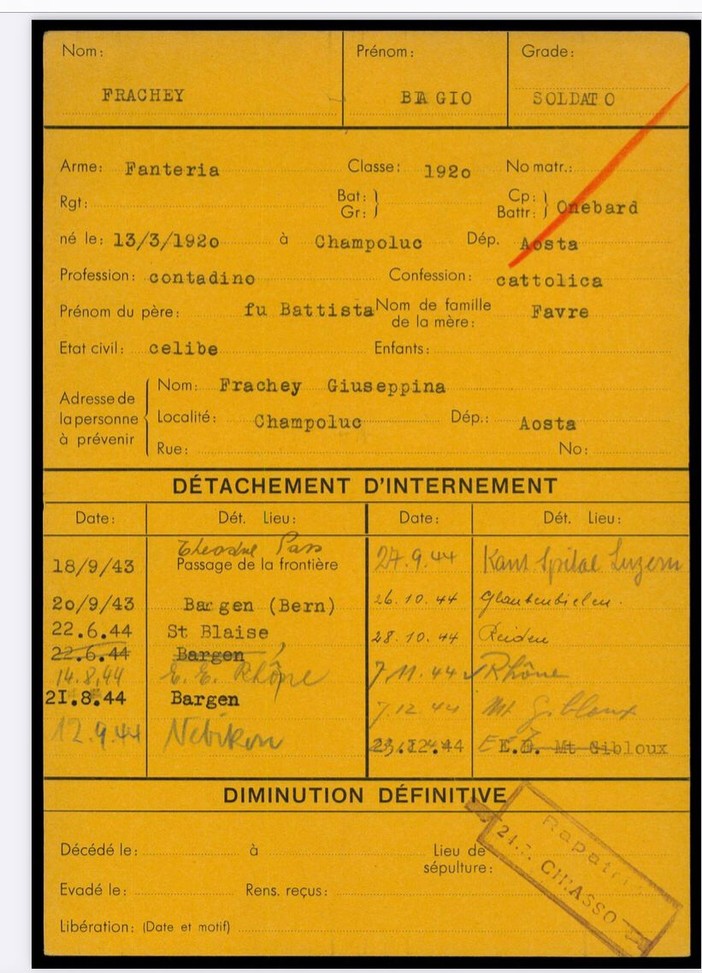 Nom: Prénom: Grade:
FRACHEY BIAGIO SOLDATO
Arme: Fanteria Classe: 1920 No matr.:
Rgt: Bat: Gr: Cp: Battr: Onebard
né le: 13/3/1920 à Champoluc Dép. Aosta
Profession: contadino Confession: cattolica
Prénom du père: fu Battista Nom de famille de la mère: Favre
Etat civil: celibe Enfants:
Adresse de la personne à prévenir
Nom: Frachey Giuseppina
Localité: Champoluc Dép.: Aosta
Rue: No:
DÉTACHEMENT D'INTERNEMENT
Date: Dét. Lieu: Date: Dét. Lieu:
Pass
18/9/43 Passage de la frontière 27.9.44 Kant Spital Luzern
20/9/43 Bargen (Bern) 26.10.44
22.6.44 St Blaise 28.10.44 Reiden
22.6.44 Bargen
14.8.44 E.E. Rhône 7.11.44 Rhône
21.8.44 Bargen 7.12.44 Mt Gibloux
12.9.44 Nebikon 23.12.44 Mt Gibloux
DIMINUTION DÉFINITIVE
Décédé le: à Lieu de sépulture:
Evadé le: Rens. reçus:
Libération: (Date et motif)
CHIASSO